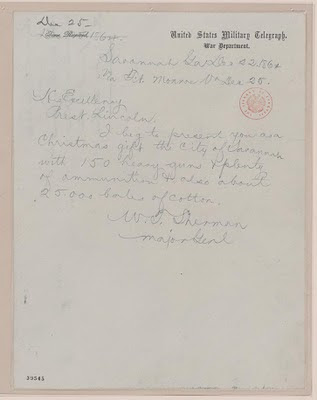 Dec 25
United States Military Telegraph.
War Department.
Savannah Ga Dec 22. 1864
Via Ft Monroe Va Dec 25.
Prest. Lincoln.
I beg to present you as a
Christmas gift the City of Savannah
with 150 heavy guns & plenty
of ammunition & also about
25.000 bales of cotton.
W. T. Sherman
Major Genl